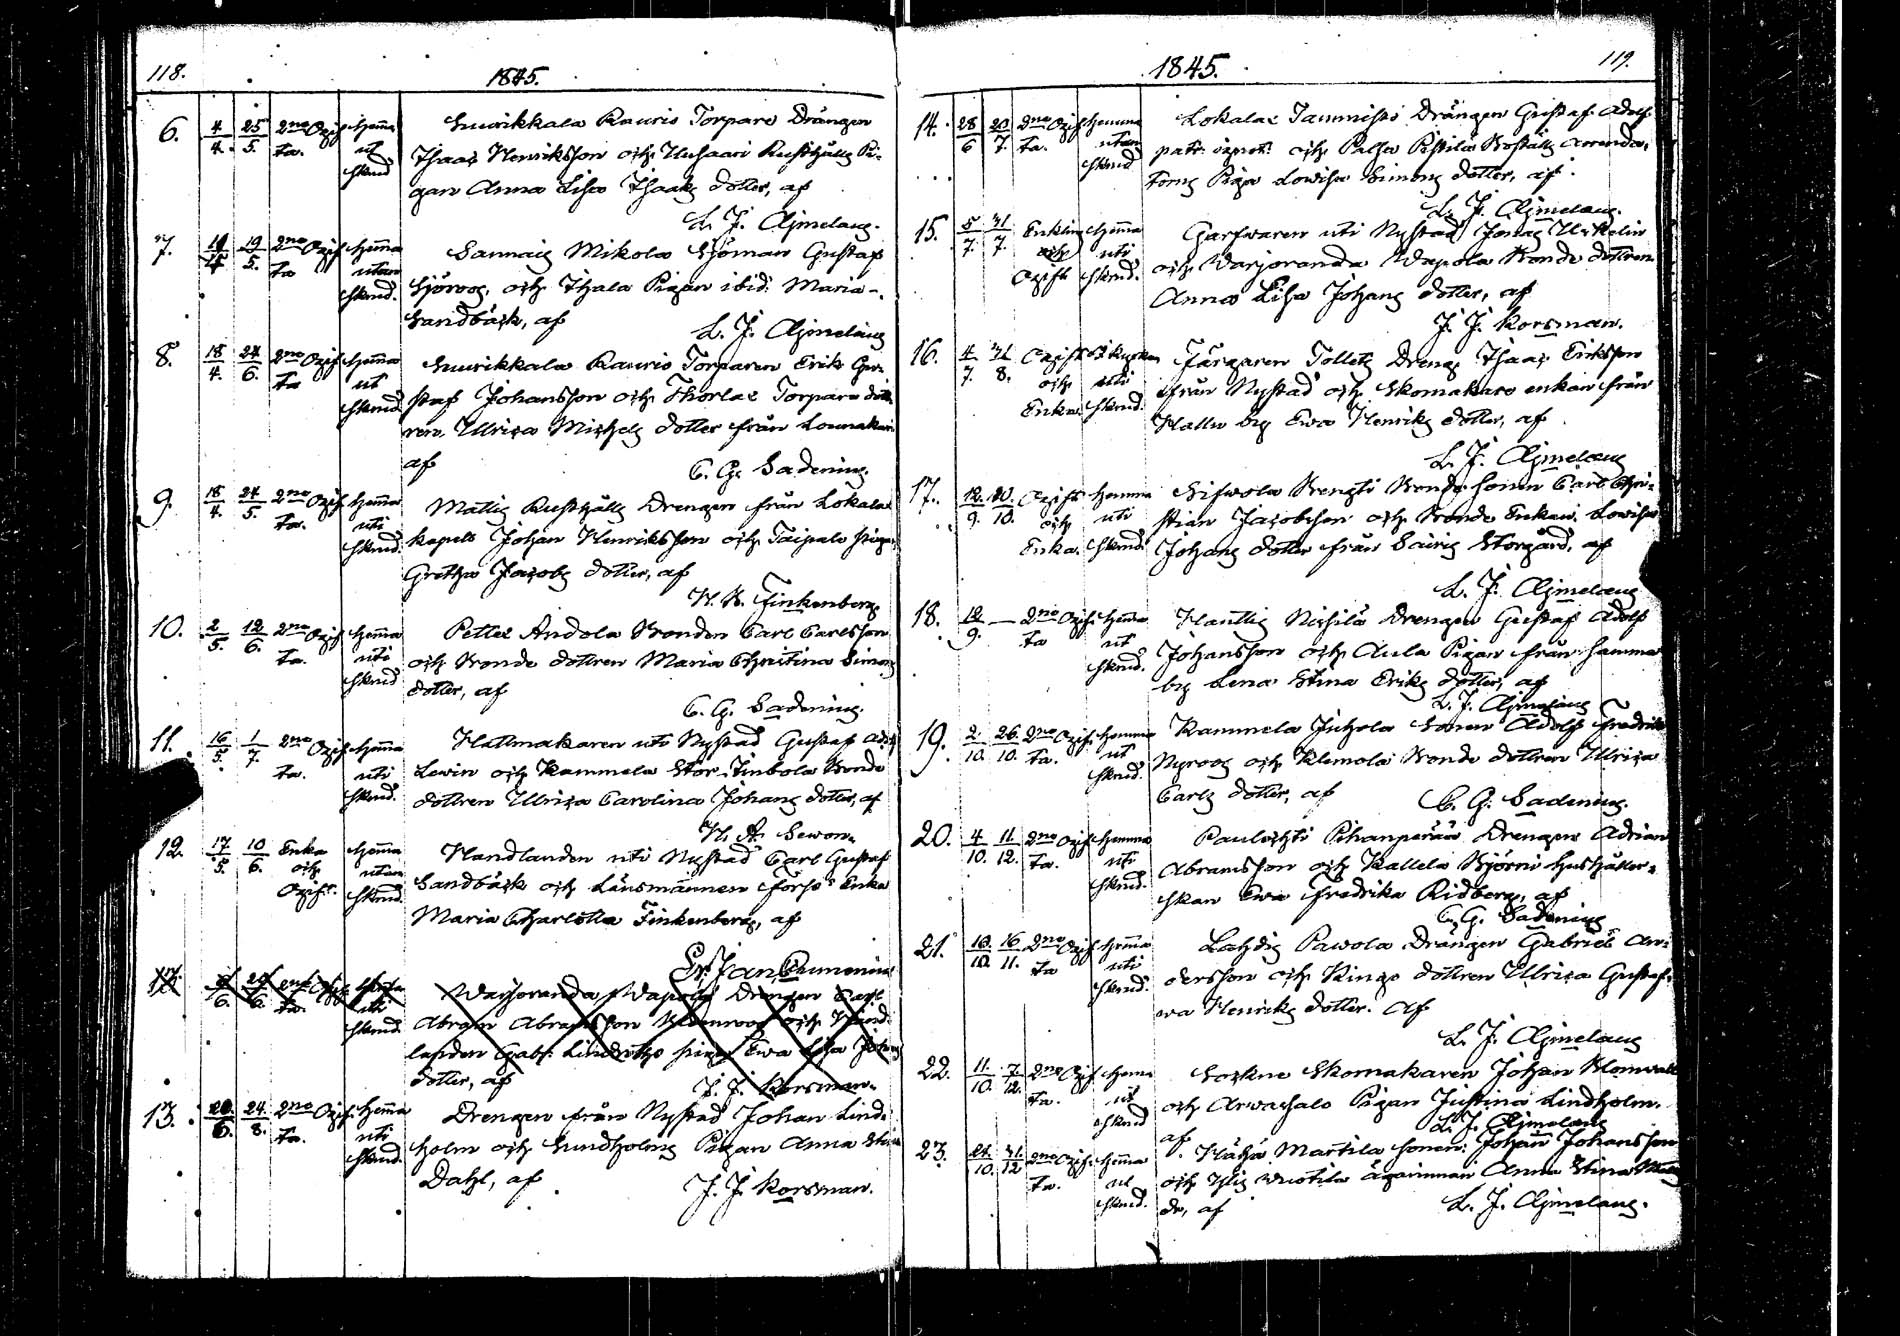 118.
1845.
6. 4/4. 25/5. 2ne Ogif Hemma
ta. ut
skrud
Suurikkala Kauris Torpare Drängen
Isaac Henriksson och Husaari Rusthålls Pi-
gan Anna Lisa Isaaks dotter, af
L. J. Ajmelaeus.
7. 19/5. 2ne Ogif Hemma
ta utan
skrud.
Sannais Mikola Sjöman Gustaf
Sjöroos, och Ihala Pigan ibid: Maria
Sandbäck, af
L. J. Ajmelaeus
8. 18/4. 24/6. 2ne Ogif Hemma
ta ut
skrud
Suurikkala Kauris Torparen Erik Gu-
staf Johansson och Thorlax Torpare dott-
ren Ulrica Michels dotter från
af
C. G. Sadenius.
9. 18/4. 24/5. 2ne Ogif. Hemma
ta. uti
skrud.
Matis Rusthålls Drengen från Lokala
kapell Johan Henriksson och Taipale piga
Gretha Jacobs dotter, af
H. B. Finkenberg.
10. 2/5. 12/6. 2ne Ogif Hemma
ta. uti
skrud
Petter Andola Bonden Carl Carlsson
och Bonde dottren Maria Christina Simons
dotter, af
C. G. Sadenius.
11. 16/5. 1/7. 2ne Ogif Hemma
ta. uti
skrud.
Hattmakaren uti Nystad Gustaf Ad.
Lewin och Kammela Stor Bonde
dottren Ulrica Carolina Johans dotter, af
H. A. Sewon.
12. 17/5. 10/6. Enka Hemma
och utan
Ogift. skrud.
Handlanden uti Nystad Carl Gustaf
Sandbäck och Länsmannen Enka
Maria Charlotta Finkenberg, af
13. 6. 6. 2ne Ogif Hemma
ta. uti
skrud.
Warjoranda Wapola Drengen Carl
Abram Abramsson och Hand-
landen Gabr: Lindroths piga Ewa Lisa Johans
dotter, af
J. J. Korsman.
13. 20/6. 24/8. 2ne Ogif. Hemma
ta. uti
skrud.
Drengen från Nystad Johan Lind-
holm och Sundholms Pigan Anna Stina
Dahl, af
J. J. Korsman.
1845.
119.
14. 28/6 20/7. 2ne Ogif Hemma
ta. utan
skrud
Lokalax Tammisto Drängen Gustaf Adolf
patr: ignot: och Palsa Pistilä Boställs Arrenda-
torns Piga Lowisa Simons dotter, af
L. J. Ajmelaeus.
15. 5/7. 31/7. Enkling Hemma
och uti
Ogift skrud.
Garfwaren uti Nystad Jonas
och Warjoranda Wapola Bonde dottren
Anna Lisa Johans dotter, af
J. J. Korsman.
16. 4/7. 31/8. Ogift i Kyrkan
och uti
Enka. skrud.
Färgaren Tollets Dreng Isaac Eriksson
från Nystad och Skomakare enkan från
Hallu by Ewa Henriks dotter, af
L. J. Ajmelaeus
17. 12/9. 10. Ogift Hemma
och uti
Enka. skrud.
Sifwola Bengti Bonde sonen Carl Chri-
stian Jacobsson och Bonde Enkan Lowisa
Johans dotter från Sairis Storgård, af
L. J. Ajmelaeus
18. 12/9. — 2ne Ogif. Hemma
ta ut
skrud.
Hautis Nissilä Drengen Gustaf Adolf
Johansson och Aula Pigan från samma
by Lena Stina Eriks dotter, af
L. J. Ajmelaeus
19. 2/10. 26/10. 2ne Ogif. Hemma
ta. ut
skrud.
Kammela Juhola Sonen Adolf Fredrik
Nyroos och Klemola Bonde dottren Ulrica
Carls dotter, af
C. G. Sadenius.
20. 4/10. 11/12. 2ne Ogif Hemma
ta. uti
skrud.
Pauluchti Pihanperää Drengen Adrian
Abramsson och Kallela Björni Hushåller-
skan Ewa Fredrika Ridberg, af
C. G. Sadenius
21. 10/10. 16/11. 2ne Ogif Hemma
ta uti
skrud.
Lahdis Pawola Drängen Gabriel An-
dersson och Kings dottren Ulrica Gustaf-
wa Henriks dotter. af
L. J. Ajmelaeus
22. 11/10. 7/12. 2ne Ogif Hema
ta. ut
skrud
Sockne Skomakaren Johan Blomvall
och Arwassalo Pigan Justina Lindholm.
af. L. J. Ajmelaeus
23. 24/10. 31/12 2ne Ogif. Hemma
ta. ut
skrud.
Hähä Martila sonen Johan Johansson
och Ylis Wuotila ägarinnan Anna Stina
dr, af
L. J. Ajmelaeus.